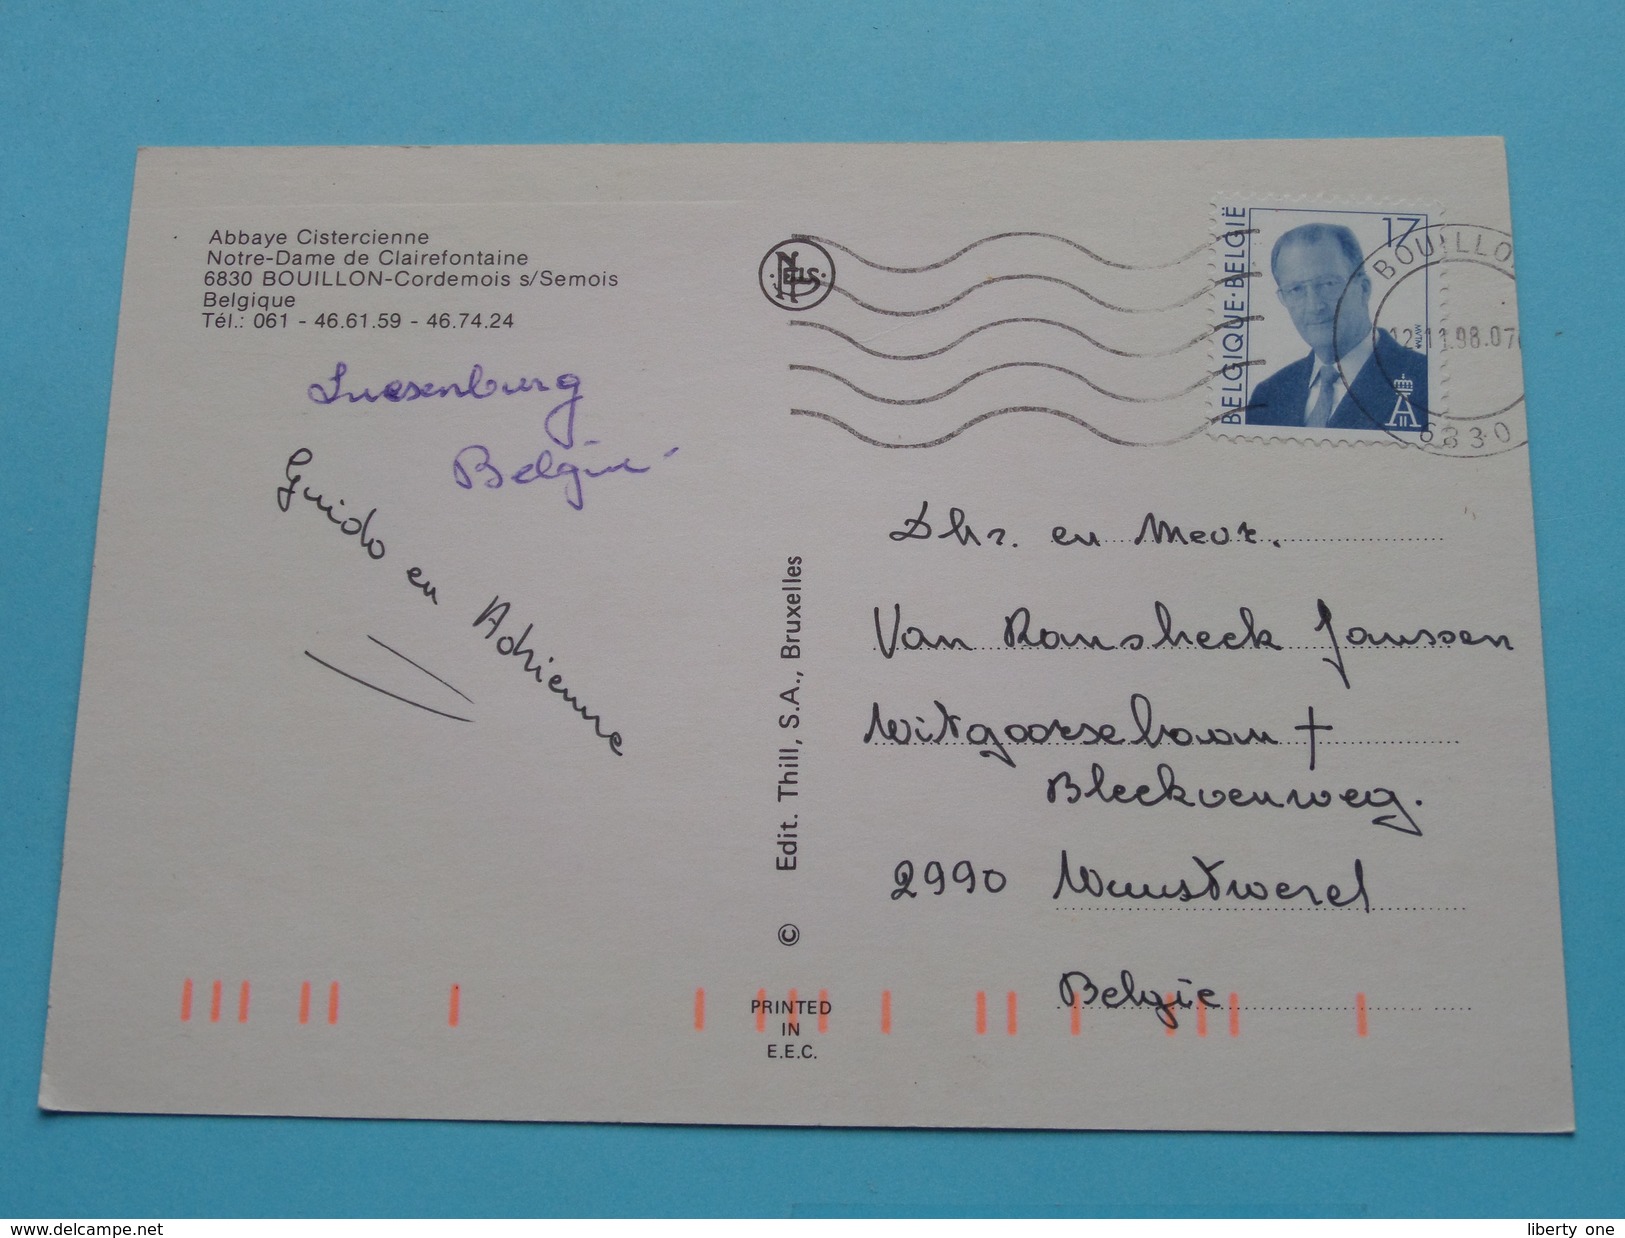 Abbaye Cistercienne
Notre-Dame de Clairefontaine
6830 BOUILLON-Cordemois s/Semois
Belgique
Tél.: 061 - 46.61.59 - 46.74.24
Luxenburg
België
Guido en Adrienne
NELS
BELGIQUE·BELGIË
17
MVTM
BOUILLON
12.11.98.07
6830
Dhr. en Mevr.
Van Ransbeeck Janssen
Witgoorsebaan +
Bleekvenweg.
2990 Wuustwezel
België
© Edit. Thill, S.A., Bruxelles
PRINTED
IN
E.E.C.
www.delcampe.net
liberty one